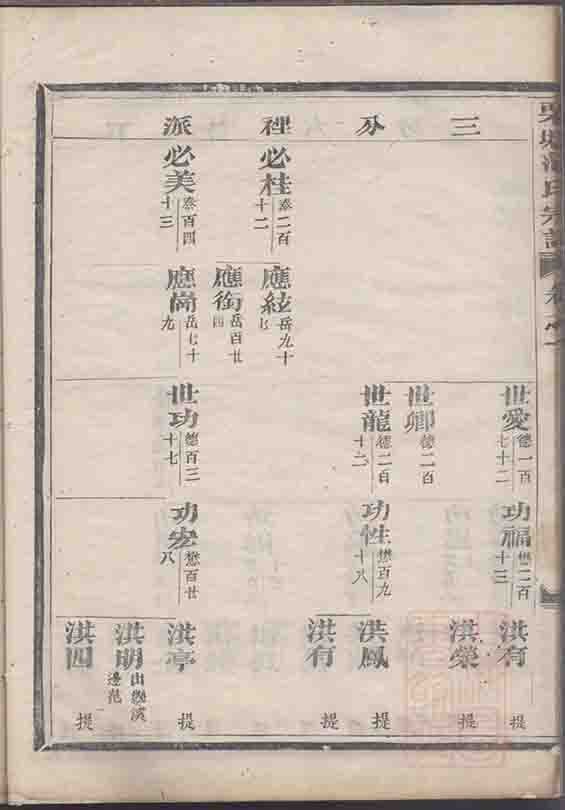 三分裡派
世愛德一百七十二
世卿德二百
世龍德二百十二
世功德百三十七
必桂泰二百十二
必美泰百四十三
應絃岳九十七
應銜岳百廿四
應崗岳七十九
功福懋二百十三
功性懋百九十八
功宏懋百廿八
洪有 提
洪榮 提
洪鳳 提
洪有 提
洪亭 提
洪明
洪四 提